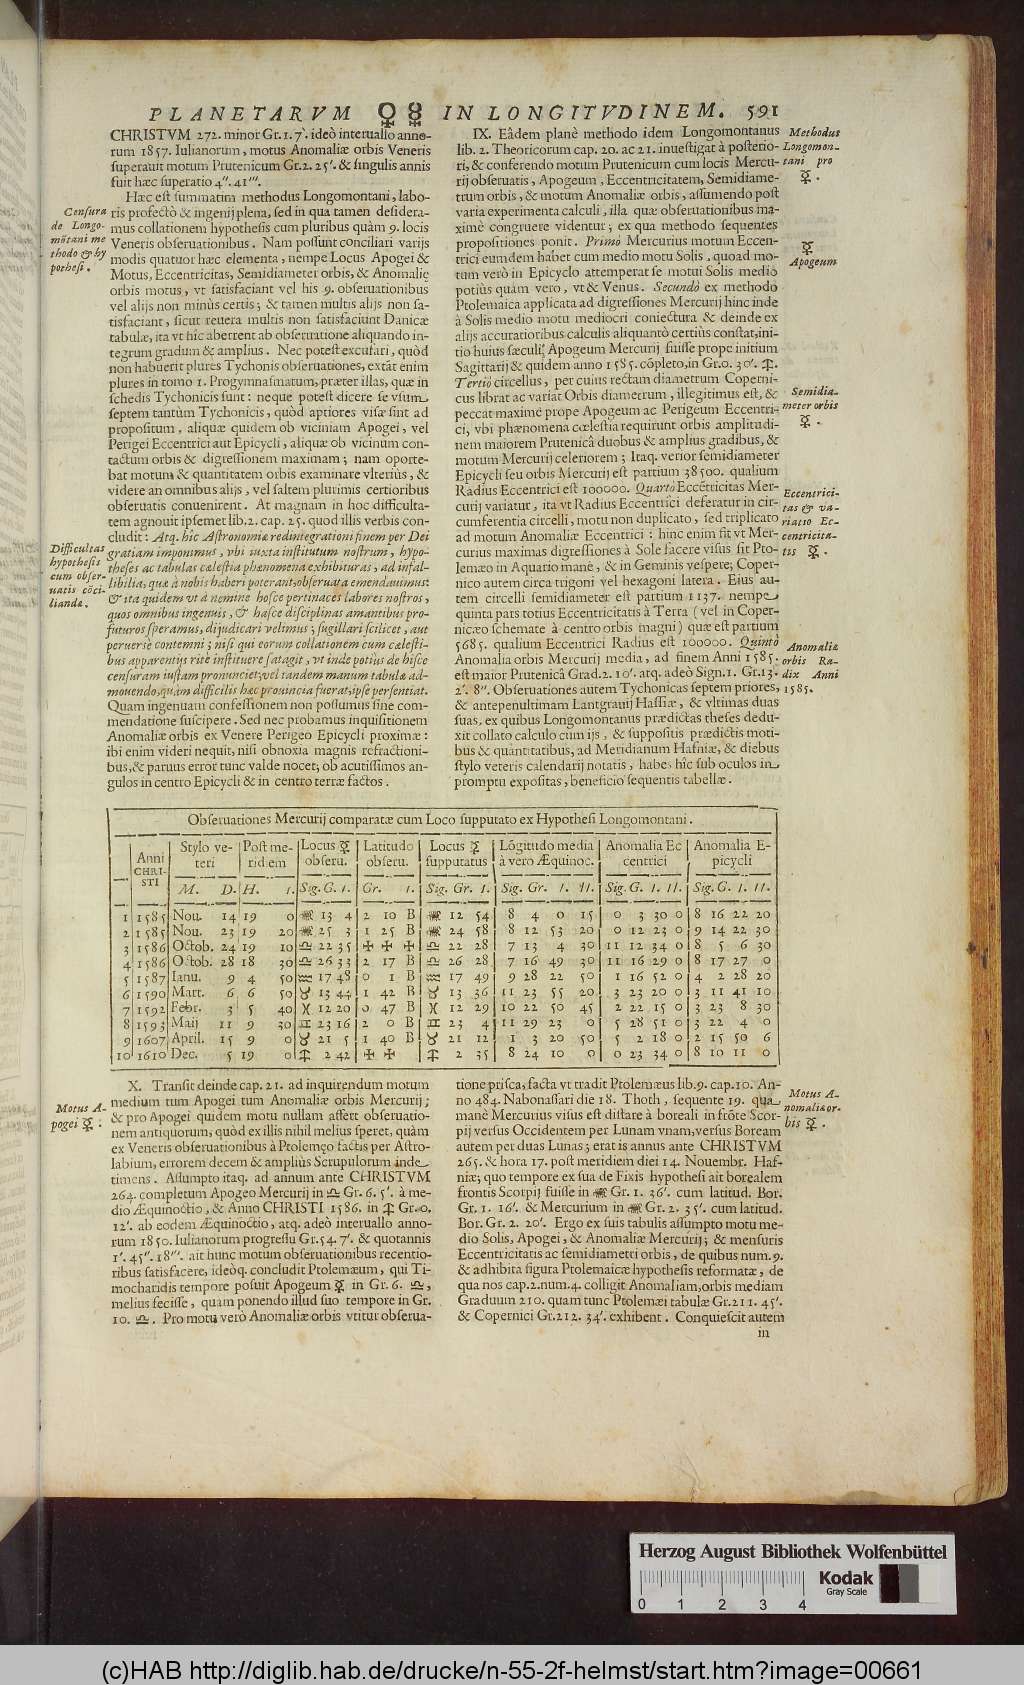 PLANETARVM ♀ ☿ IN LONGITVDINEM. 591
CHRISTVM 272. minor Gr. 1. 7'. ideò interuallo anno-
rum 1857. Iulianorum, motus Anomaliæ orbis Veneris
superauit motum Prutenicum Gr. 2. 25'. & singulis annis
fuit hæc superatio 4''. 41'''.
Hæc est summatim methodus Longomontani, labo-
ris profectò & ingenij plena, sed in qua tamen desidera-
mus collationem hypothesis cum pluribus quàm 9. locis
Veneris obseruationibus. Nam possunt conciliari varijs
modis quatuor hæc elementa, nempe Locus Apogei &
Motus, Eccentricitas, Semidiameter orbis, & Anomalię
orbis motus, vt satisfaciant vel his 9. obseruationibus
vel alijs non minùs certis; & tamen multis alijs non sa-
tisfaciant, sicut reuera multis non satisfaciunt Danicæ
tabulæ, ita vt hîc aberrent ab obseruatione aliquando in-
tegrum gradum & amplius. Nec potest excusari, quòd
non habuerit plures Tychonis obseruationes, extât enim
plures in tomo 1. Progymnasmatum, præter illas, quæ in
schedis Tychonicis sunt: neque potest dicere se vsum
septem tantùm Tychonicis, quòd aptiores visæ sint ad
propositum, aliquæ quidem ob viciniam Apogei, vel
Perigei Eccentrici aut Epicycli, aliquæ ob vicinum con-
tactum orbis & digressionem maximam; nam oporte-
bat motum & quantitatem orbis examinare vlterius, &
videre an omnibus alijs, vel saltem plurimis certioribus
obseruatis conuenirent. At magnam in hoc difficulta-
tem agnouit ipsemet lib. 2. cap. 25. quod illis verbis con-
cludit: Atq. hîc Astronomiæ redintegrationi finem per Dei
gratiam imponimus, vbi iuxta institutum nostrum, hypo-
theses ac tabulas cælestia phænomena exhibituras, ad infal-
libilia, quæ à nobis haberi poterant, obseruata emendauimus:
& ita quidem vt à nemine hosce pertinaces labores nostros,
quos omnibus ingenuis, & hasce disciplinas amantibus pro-
futuros speramus, dijudicari velimus; sugillari scilicet, aut
peruersè contemni; nisi qui eorum collationem cum cælesti-
bus apparentijs ritè instituere satagit, vt inde potius de hisce
censuram iustam pronunciet; vel tandem manum tabulæ ad-
mouendo, quàm difficilis hæc prouincia fuerat, ipse sentiat.
Quam ingenuam confessionem non possumus sine com-
mendatione suscipere. Sed nec probamus inquisitionem
Anomaliæ orbis ex Venere Perigeo Epicycli proximæ:
ibi enim videri nequit, nisi obnoxia magnis refractioni-
bus, & paruus error tunc valde nocet; ob acutissimos an-
gulos in centro Epicycli & in centro terræ factos.
Censura
de Longo-
mõtani me
thodo & hy
pothesi.
Difficultas
hypothesis
cum obser-
uatis cõci-
liandæ.
IX. Eâdem planè methodo idem Longomontanus
lib. 2. Theoricorum cap. 20. ac 21. inuestigat à posterio-
ri, & conferendo motum Prutenicum cum locis Mercu-
rij obseruatis, Apogeum, Eccentricitatem, Semidiame-
trum orbis, & motum Anomaliæ orbis, assumendo post
varia experimenta calculi, illa quæ obseruationibus ma-
ximè congruere videntur; ex qua methodo sequentes
propositiones ponit. Primò Mercurius motum Eccen-
trici eumdem habet cum medio motu Solis, quoad mo-
tum verò in Epicyclo attemperat se motui Solis medio
potiùs quàm vero, vt & Venus. Secundò ex methodo
Ptolemaica applicata ad digressiones Mercurij hinc inde
à Solis medio motu mediocri coniectura & deinde ex
alijs accuratioribus calculis aliquantò certiùs constat, ini-
tio huius sæculi, Apogeum Mercurij fuisse prope initium
Sagittarij & quidem anno 1585. cõpleto, in Gr. 0. 30'. ♐.
Tertiò circellus, per cuius rectam diametrum Coperni-
cus librat ac variat Orbis diametrum, illegitimus est, &
peccat maximè prope Apogeum ac Perigeum Eccentri-
ci, vbi phænomena cœlestia requirunt orbis amplitudi-
nem maiorem Prutenicâ duobus & amplius gradibus, &
motum Mercurij celeriorem; Itaq. verior semidiameter
Epicycli seu orbis Mercurij est partium 38500. qualium
Radius Eccentrici est 100000. Quartò Eccẽtricitas Mer-
curij variatur, ita vt Radius Eccentrici deferatur in cir-
cumferentia circelli, motu non duplicato, sed triplicato
ad motum Anomaliæ Eccentrici: hinc enim fit vt Mer-
curius maximas digressiones à Sole facere visus sit Pto-
lemæo in Aquario manè, & in Geminis vesperè; Coper-
nico autem circa trigoni vel hexagoni latera. Eius au-
tem circelli semidiameter est partium 1137. nempe
quinta pars totius Eccentricitatis à Terra (vel in Coper-
nicæo schemate à centro orbis magni) quæ est partium
5685. qualium Eccentrici Radius est 100000. Quintò
Anomalia orbis Mercurij media, ad finem Anni 1585.
est maior Prutenicâ Grad. 2. 10'. atq. adeò Sign. 1. Gr. 13.
2'. 8''. Obseruationes autem Tychonicas septem priores,
& antepenultimam Lantgrauij Hassiæ, & vltimas duas
suas, ex quibus Longomontanus prædictas theses dedu-
xit collato calculo cùm ijs, & suppositis prædictis moti-
bus & quantitatibus, ad Meridianum Hafniæ, & diebus
stylo veteris calendarij notatis, habes hîc sub oculos in
promptu expositas, beneficio sequentis tabellæ.
Methodus
Longomon-
tani pro
☿.
☿
Apogeum
Semidia-
meter orbis
☿.
Eccentrici-
tas & va-
riatio Ec-
centricita-
tis ☿.
Anomalia
orbis Ra-
dix Anni
1585.
Obseruationes Mercurij comparatæ cum Loco supputato ex Hypothesi Longomontani.
Anni CHRISTI | Stylo veteri | Post meridiem | Locus ☿ obseru. | Latitudo obseru. | Locus ☿ supputatus | Lõgitudo media à vero Æquinoc. | Anomalia Eccentrici | Anomalia Epicycli
M. D. | H. I. | Sig. G. I. | Gr. I. | Sig. Gr. I. | Sig. Gr. I. II. | Sig. G. I. II. | Sig. G. I. II.
1 1585 Nou. 14 19 0 ♏ 13 4 2 10 B ♏ 12 54 8 4 0 15 0 3 30 0 8 16 22 20
2 1585 Nou. 23 19 20 ♏ 25 3 1 25 B ♏ 24 58 8 12 53 20 0 12 23 0 9 14 22 30
3 1586 Octob. 24 19 10 ♎ 22 35 ✠ ✠ ✠ ♎ 22 28 7 13 4 30 11 12 34 0 8 5 6 30
4 1586 Octob. 28 18 30 ♎ 26 33 2 17 B ♎ 26 28 7 16 49 30 11 16 29 0 8 17 27 0
5 1587 Ianu. 9 4 50 ♒ 17 48 0 1 B ♒ 17 49 9 28 22 50 1 16 52 0 4 2 28 20
6 1590 Mart. 6 6 50 ♉ 13 44 1 42 B ♉ 13 36 11 23 55 20 3 23 20 0 3 11 41 10
7 1592 Febr. 3 5 40 ♓ 12 20 0 47 B ♓ 12 29 10 22 50 45 2 22 15 0 3 23 8 30
8 1593 Maij 11 9 30 ♊ 23 16 2 0 B ♊ 23 4 11 29 23 0 5 28 51 0 3 22 4 0
9 1607 April. 15 9 0 ♉ 21 5 1 40 B ♉ 21 12 1 3 20 50 5 2 18 0 2 15 50 6
10 1610 Dec. 5 19 0 ♐ 2 42 ✠ ✠ ♐ 2 35 8 24 10 0 0 23 34 0 8 10 11 0
X. Transit deinde cap. 21. ad inquirendum motum
medium tum Apogei tum Anomaliæ orbis Mercurij;
& pro Apogei quidem motu nullam affert obseruatio-
nem antiquorum, quòd ex illis nihil melius speret, quàm
ex Veneris obseruationibus à Ptolemęo factis per Astro-
labium, errorem decem & ampliùs Scrupulorum inde
timens. Assumpto itaq. ad annum ante CHRISTVM
264. completum Apogeo Mercurij in ♎ Gr. 6. 5'. à me-
dio Æquinoctio, & Anno CHRISTI 1586. in ♐ Gr. 0.
12'. ab eodem Æquinoctio, atq. adeò interuallo anno-
rum 1850. Iulianorum progressu Gr. 54. 7'. & quotannis
1'. 45''. 18'''. ait hunc motum obseruationibus recentio-
ribus satisfacere, ideòq. concludit Ptolemæum, qui Ti-
mocharidis tempore posuit Apogeum ☿ in Gr. 6. ♎,
melius fecisse, quam ponendo illud suo tempore in Gr.
10. ♎. Pro motu verò Anomaliæ orbis vtitur obserua-
Motus A-
pogei ☿:
tione prisca, facta vt tradit Ptolemæus lib. 9. cap. 10. An-
no 484. Nabonassari die 18. Thoth, sequente 19. qua
manè Mercurius visus est distare à boreali in frõte Scor-
pij versus Occidentem per Lunam vnam, versus Boream
autem per duas Lunas; erat is annus ante CHRISTVM
265. & hora 17. post meridiem diei 14. Nouembr. Haf-
niæ; quo tempore ex sua de Fixis hypothesi ait borealem
frontis Scorpij fuisse in ♏ Gr. 1. 36'. cum latitud. Bor.
Gr. 1. 16'. & Mercurium in ♏ Gr. 2. 35'. cum latitud.
Bor. Gr. 2. 20'. Ergo ex suis tabulis assumpto motu me-
dio Solis, Apogei, & Anomaliæ Mercurij; & mensuris
Eccentricitatis ac semidiametri orbis, de quibus num. 9.
& adhibita figura Ptolemaicæ hypothesis reformatæ, de
qua nos cap. 2. num. 4. colligit Anomaliam, orbis mediam
Graduum 210. quam tunc Ptolemæi tabulæ Gr. 211. 45'.
& Copernici Gr. 212. 34'. exhibent. Conquiescit autem
in
Motus A-
nomaliæ or-
bis ☿.
Herzog August Bibliothek Wolfenbüttel
0 1 2 3 4
Kodak
Gray Scale
(c)HAB http://diglib.hab.de/drucke/n-55-2f-helmst/start.htm?image=00661